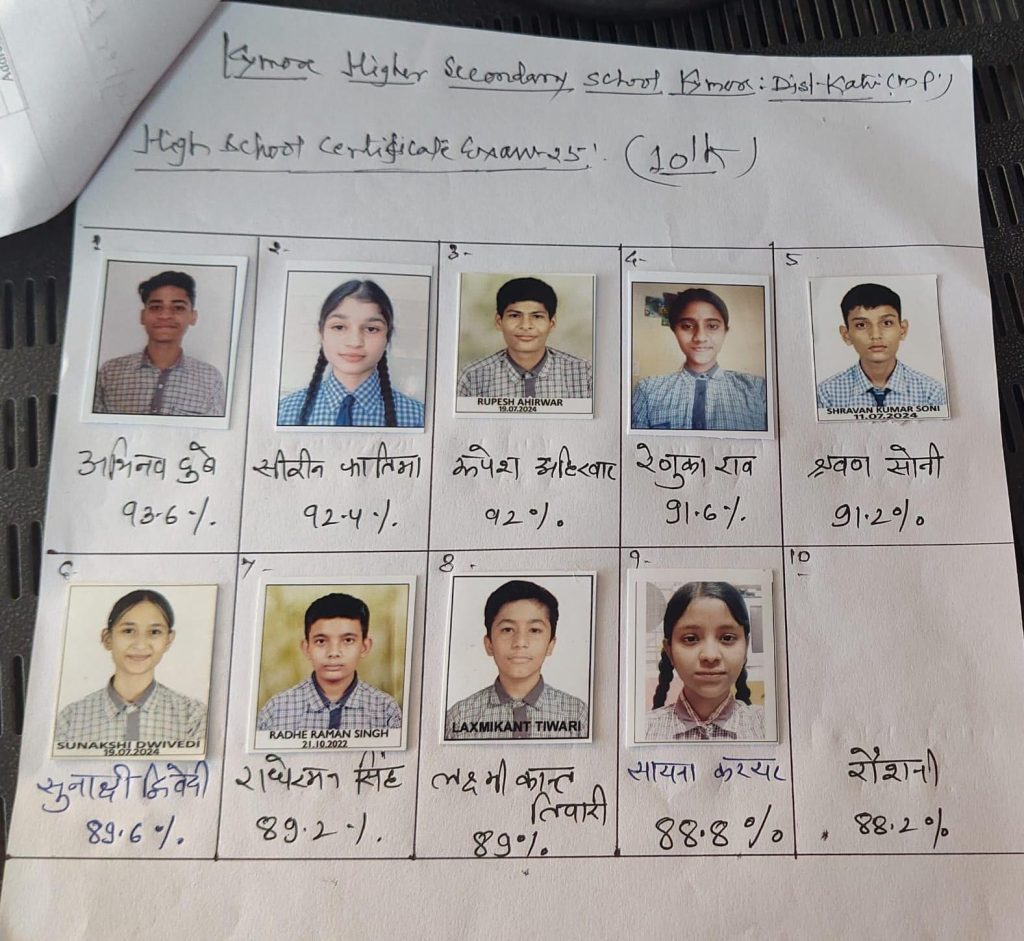 Kymore Higher Secondary School Kymore: Dist-Katni (M.P.)
High School Certificate Exam 25 (10th)
1
2-
3-
4-
5
RUPESH AHIRWAR
19.07.2024
SHRAVAN KUMAR SONI
11.07.2024
अभिनव दुबे
सीरीन फातिमा
रूपेश अहिरवार
रेणुका राव
श्रवण सोनी
93.6%
92.4%
92%
91.6%
91.2%
6-
7-
8.
9-
10
SUNAKSHI DWIVEDI
19.07.2024
RADHE RAMAN SINGH
21.10.2022
LAXMIKANT TIWARI
सुनाक्षी द्विवेदी
राधेरमन सिंह
लक्ष्मी कान्त
तिवारी
सायना
रौशनी
89.6%
89.2%
89%
88.8%
88.2%